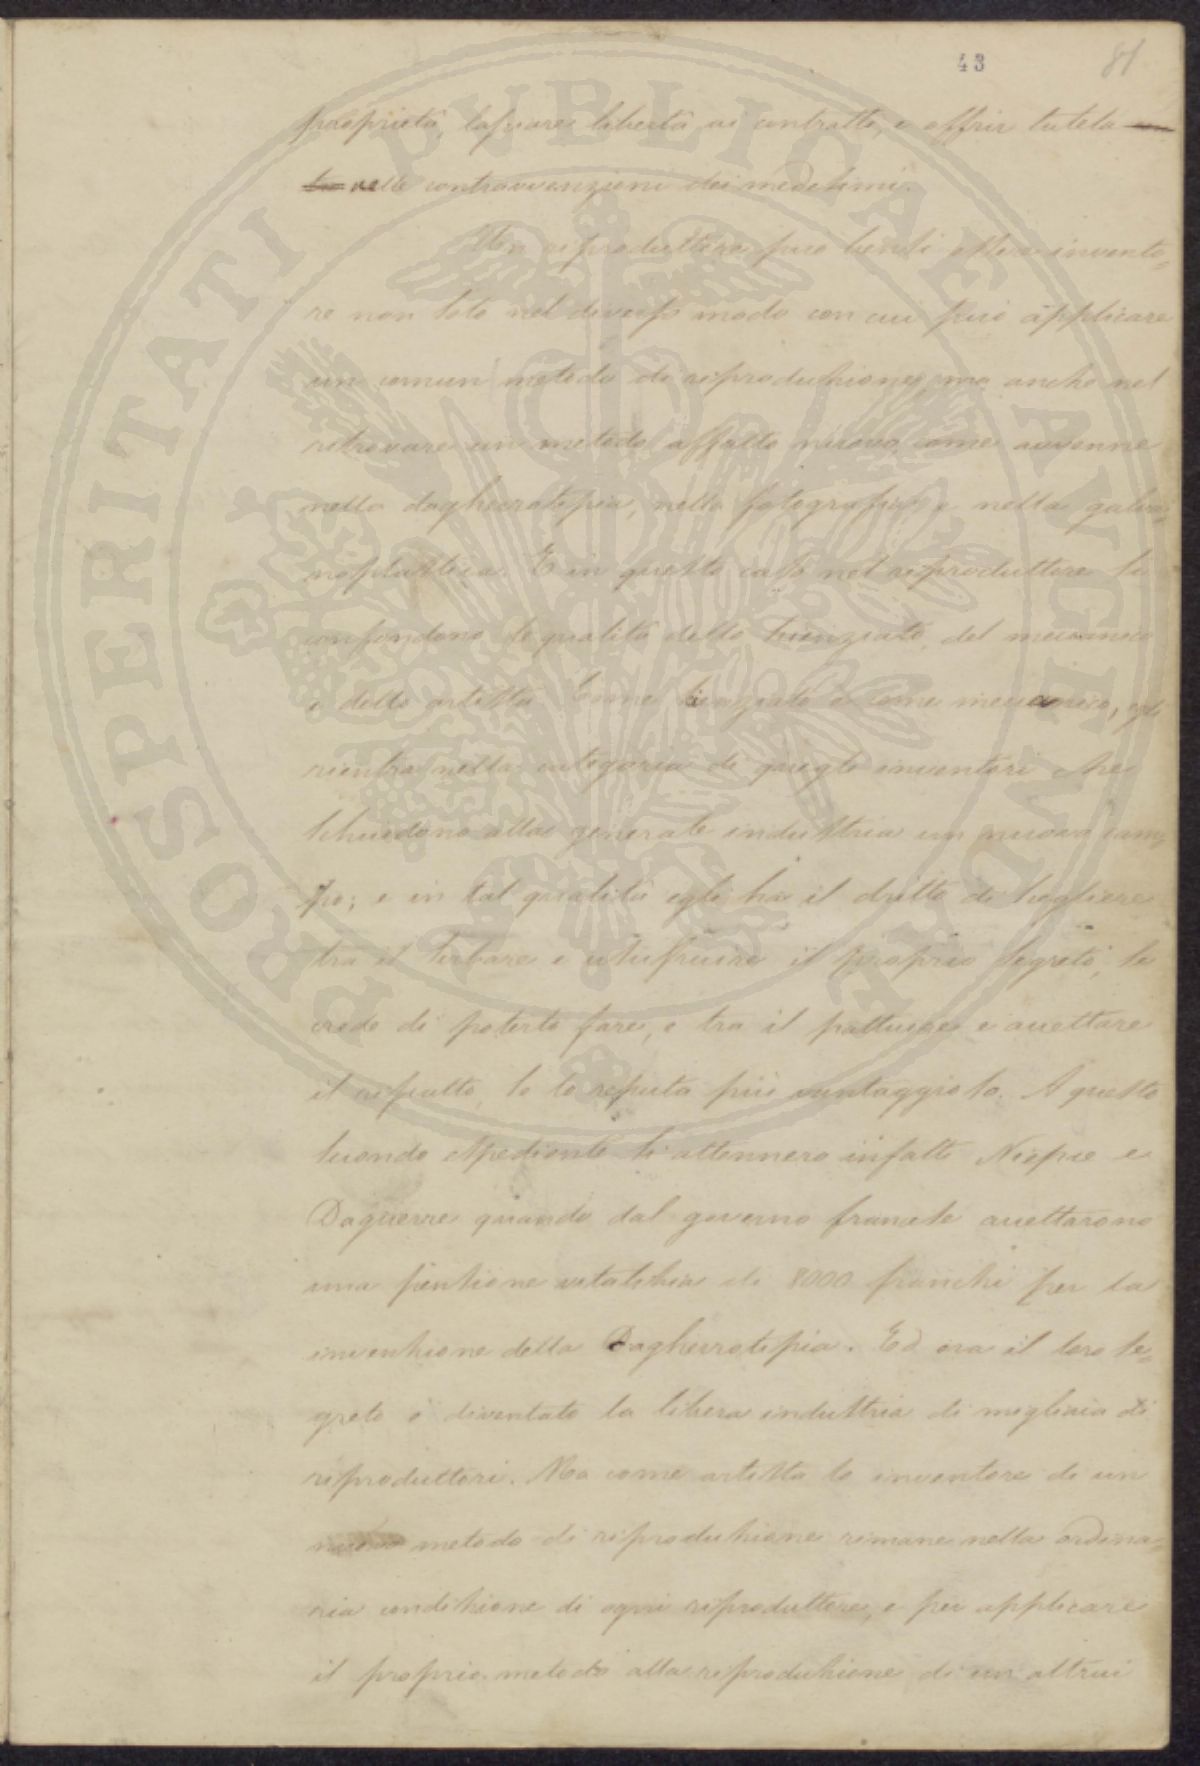 43 81
proprietà, lasciare libertà ai contratti, e offrir tutela
nelle contravvenzioni dei medesimi.
Un riproduttore può bensì essere invento=
re non solo nel diverso modo con cui può applicare
un comun metodo di riproduzione, ma anche nel
ritrovare un metodo affatto nuovo, come avvenne
nella dagherrotipia, nella fotografia, e nella galva=
noplastica. E in questo caso nel riproduttore si
confondono le qualità dello scienziato, del meccanico
e dello artista. Come scienziato e come meccanico, egli
rientra nella categoria di quegli inventori che
schiudono alla generale industria un nuovo cam=
po; e in tal qualità egli ha il dritto di scegliere
tra il serbare e usufruire il proprio segreto, se
crede di poterlo fare, e tra il pattuire e accettare
il riscatto, se lo reputa più vantaggioso. A questo
secondo espediente si attennero infatti Niepce e
Daguerre quando dal governo francese accettarono
una pensione vitalizia di 8000 franchi per la
invenzione della Dagherrotipia. Ed ora il loro se=
greto è diventato la libera industria di migliaia di
riproduttori. Ma come artista lo inventore di un
nuovo metodo di riproduzione rimane nella ordina=
ria condizione di ogni riproduttore, e per applicare
il proprio metodo alla riproduzione di un altrui
PROSPERITATI PVBLICAE AVGENDAE